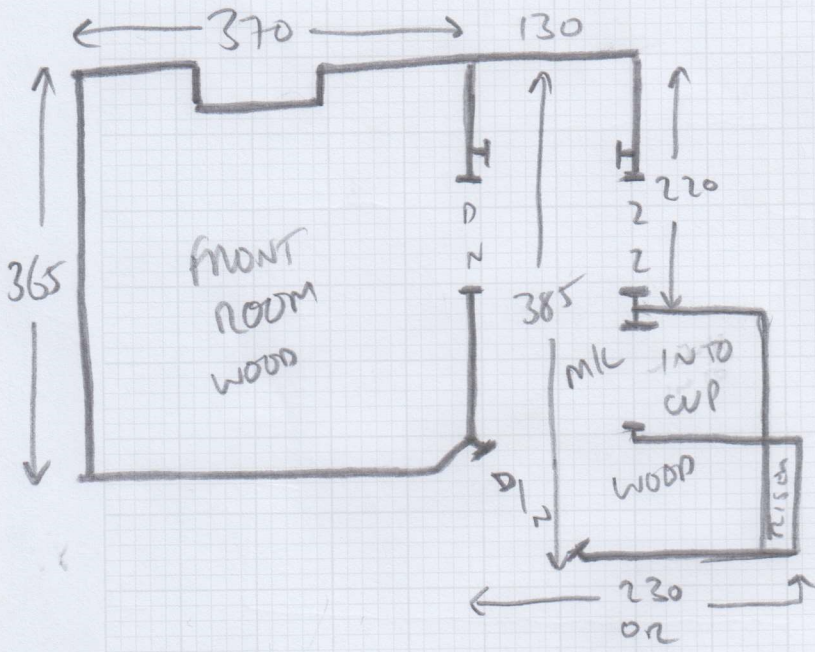 370
130
365
FRONT
ROOM
WOOD
D
N
385
220
2
2
M/L
INTO
CUP
WOOD
D/N
RISER
230
OR